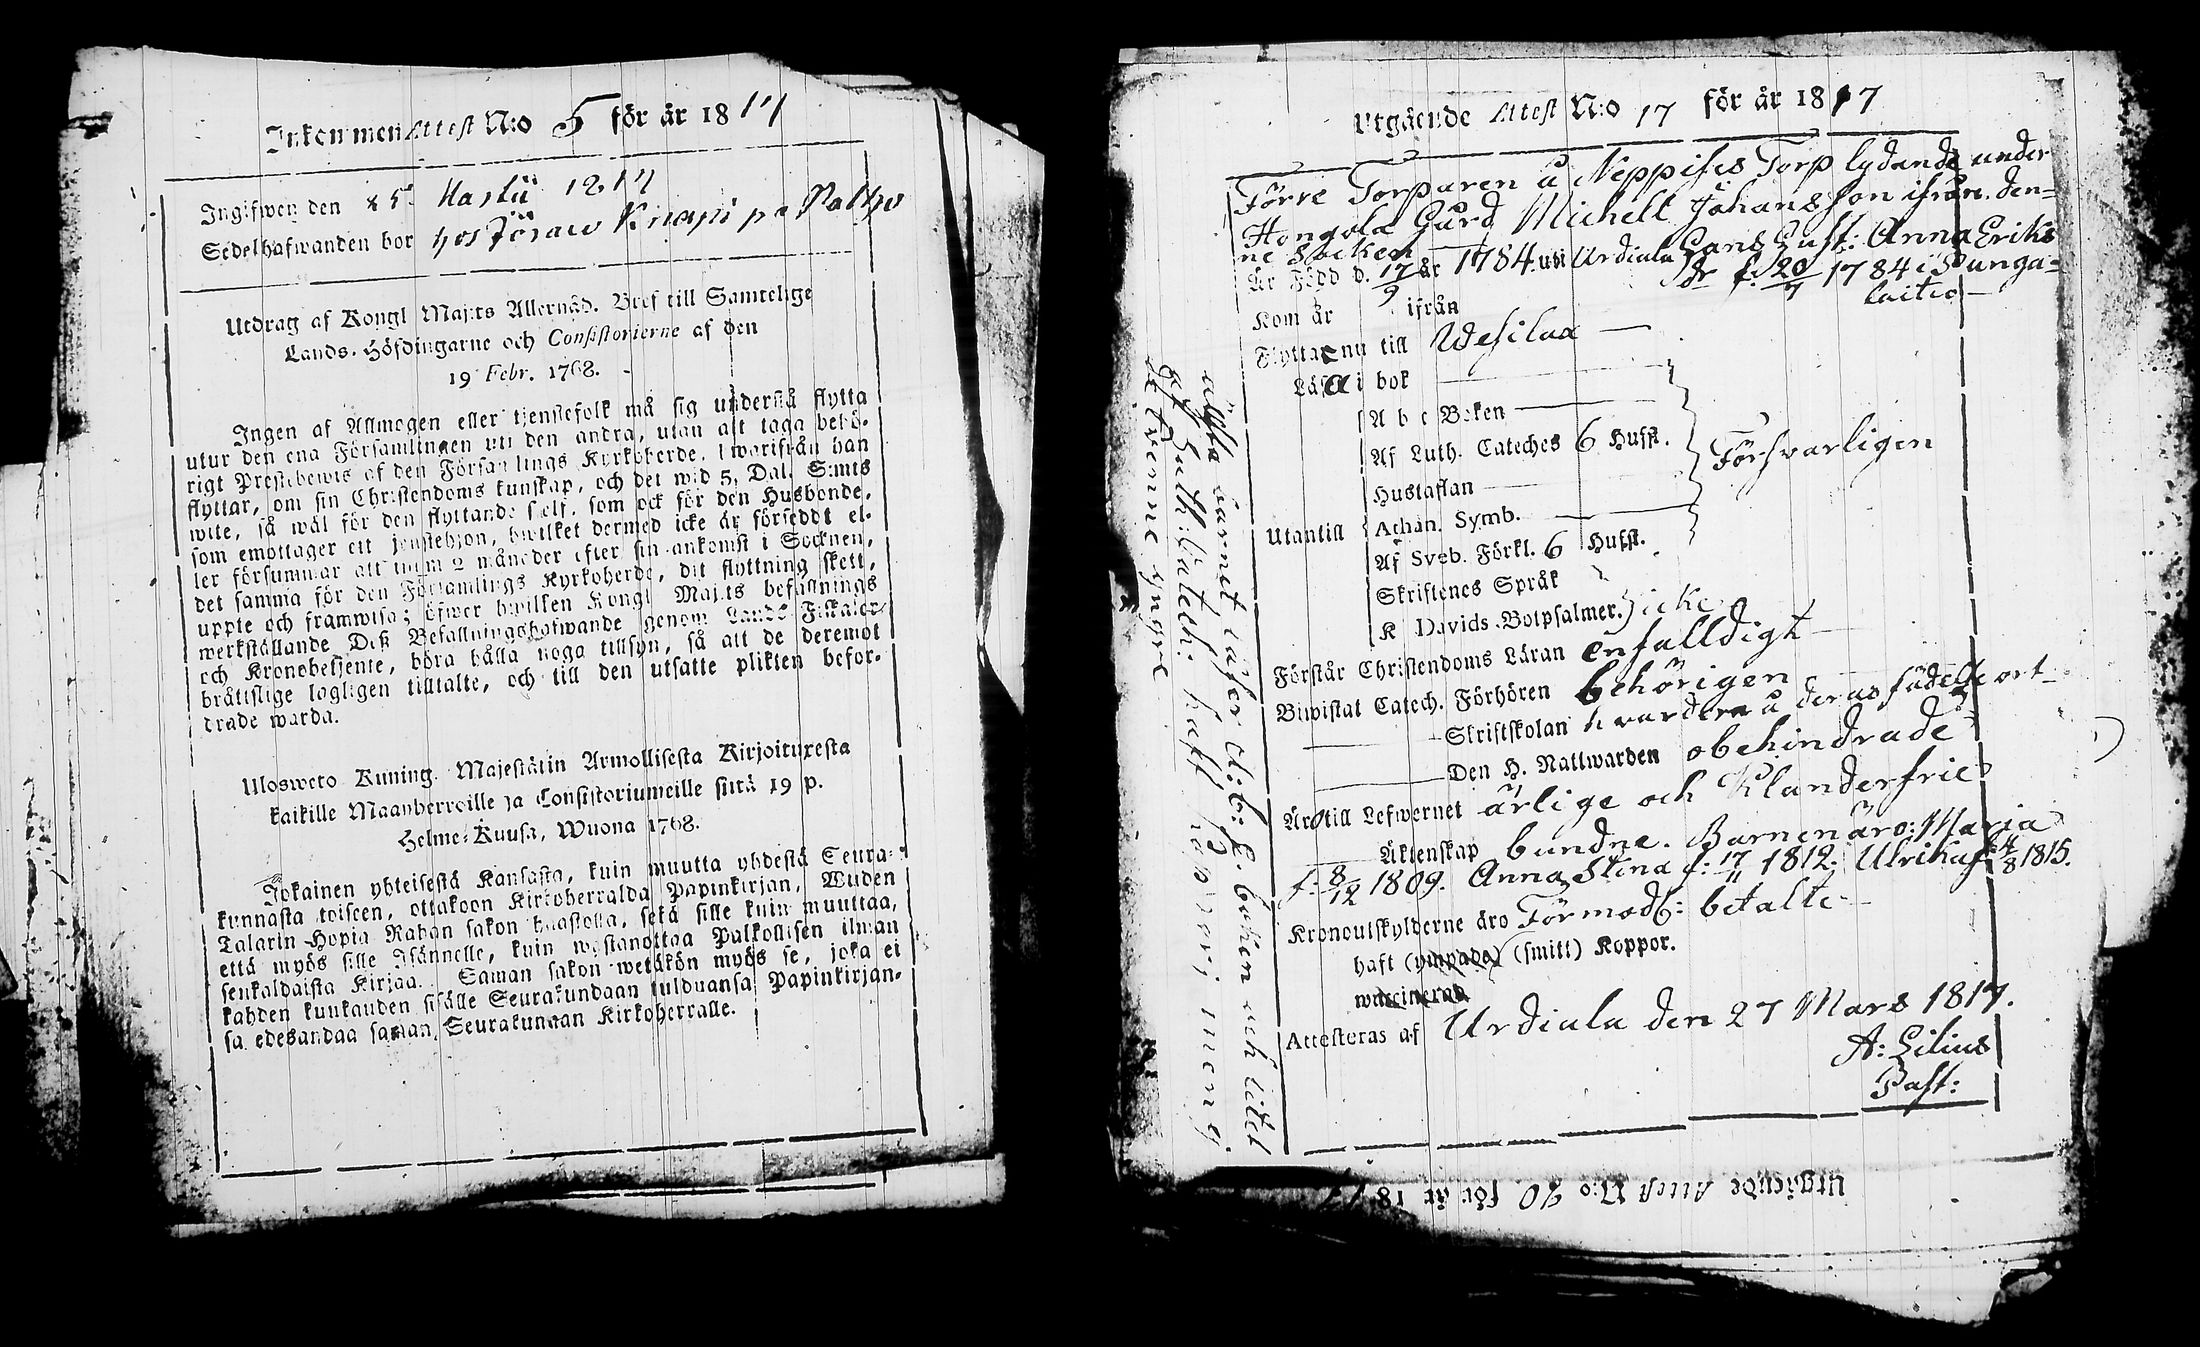 Inkommen Attest N:o 5 för år 1817
Ingifwen den Martii 1817
Sedelhafwanden bor hos Jöran Knapi på Palho
Utdrag af Kongl Maj:ts Allernåd. Bref till Samtelige
Lands-Höfdingarne och Consistorierne af den
19 Febr. 1768.
Ingen af Allmogen eller tjenstefolk må sig understå flytta
utur den ena Församlingen uti den andra, utan att taga behö-
rigt Prestebewis af den Församlings Kyrkoherde, hwarifrån han
flyttar, om sin Christendoms kunskap, och det wid 5, Dal. S:mts
wite, så wäl för den flyttande sielf, som ock för den Husbonde,
som emottager ett jenstehjon, hwilket dermed icke är förseddt el-
ler försummar att inom 2 månader efter sin ankomst i Socknen,
det samma för den Församlings Kyrkoherde, dit flyttning skett,
uppte och framwisa; öfwer hwilken Kongl Maj:ts befallnings
werkställande Deß Befallningshafwande genom Lands-Fiskaler
och Kronobetjente, böra hålla noga tillsyn, så att de deremot
bråttslige lagligen tilltalte, och till den utsatte plikten befor-
drade warda.
Ulosweto Kuning. Majestätin Armollisesta Kirjoituxesta
kaikille Maanherroille ja Consistoriumeille siitä 19 p.
Helme-Kuusa, Wuona 1768.
Jokainen yhteisestä Kansasta, kuin muutta yhdestä Seura-
kunnasta toiseen, ottakoon Kirkoherralda Papinkirjan, Wuden
Talarin Hopia Rahan sakon haastolla, sekä sille kuin muuttaa,
että myös sille Isännelle, kuin wastanottaa Palkollisen ilman
senkaldaista Kirjaa. Saman sakon wetäkön myös se, joka ei
kahden kuukauden sisälle Seurakundaan tulduansa Papinkirjan-
sa edesandaa saman Seurakunnan Kirkoherralle.
Utgående Attest N:o 17 för år 1817
Förre Torparen å Neppises Torp lydande under
Hongola Gård Michell Johansson ifrån den-
ne Socken
Är Född d. 17/9 år 1784 uti Urdiala Hans Hust: Anna Eriks
dr f. 20/7 1784 i Punga-
laitio
Kom år ifrån
Flytta nu till Wesilax
Läsa i bok
A b c Boken
Af Luth. Cateches 6 Hufst.
Hustaflan
Försvarligen
Utantill Athan. Symb.
Af Sveb. Förkl. 6 Hufst.
Skriftenes Språk
K Davids Botpsalmer. Icke
Förstår Christendoms Läran enfalldigt
Biwistat Catech. Förhören behörigen
Skriftskolan hvardera å deras födelse ort
Den H. Nattwarden obehindrade
Äro till Lefwernet ärlige och Klanderfrie
Äktenskap bundne. Barnen äro: Maria
f: 8/12 1809. Anna Stina f: 17/11 1812. Ulrika f: 4/8 1815.
Kronoutskylderne äro Förmodl: betalte
haft (ympade) (smitt) Koppor.
waccinerad
Attesteras af Urdiala den 27 Mars 1817.
A: Lilius
Past:
äldsta barnet läser a:b:c: boken och litet
af Luth: Catech: haft koppor; men ej
de tvenne yngre
Utgående Attest N:o 20 för år 1817